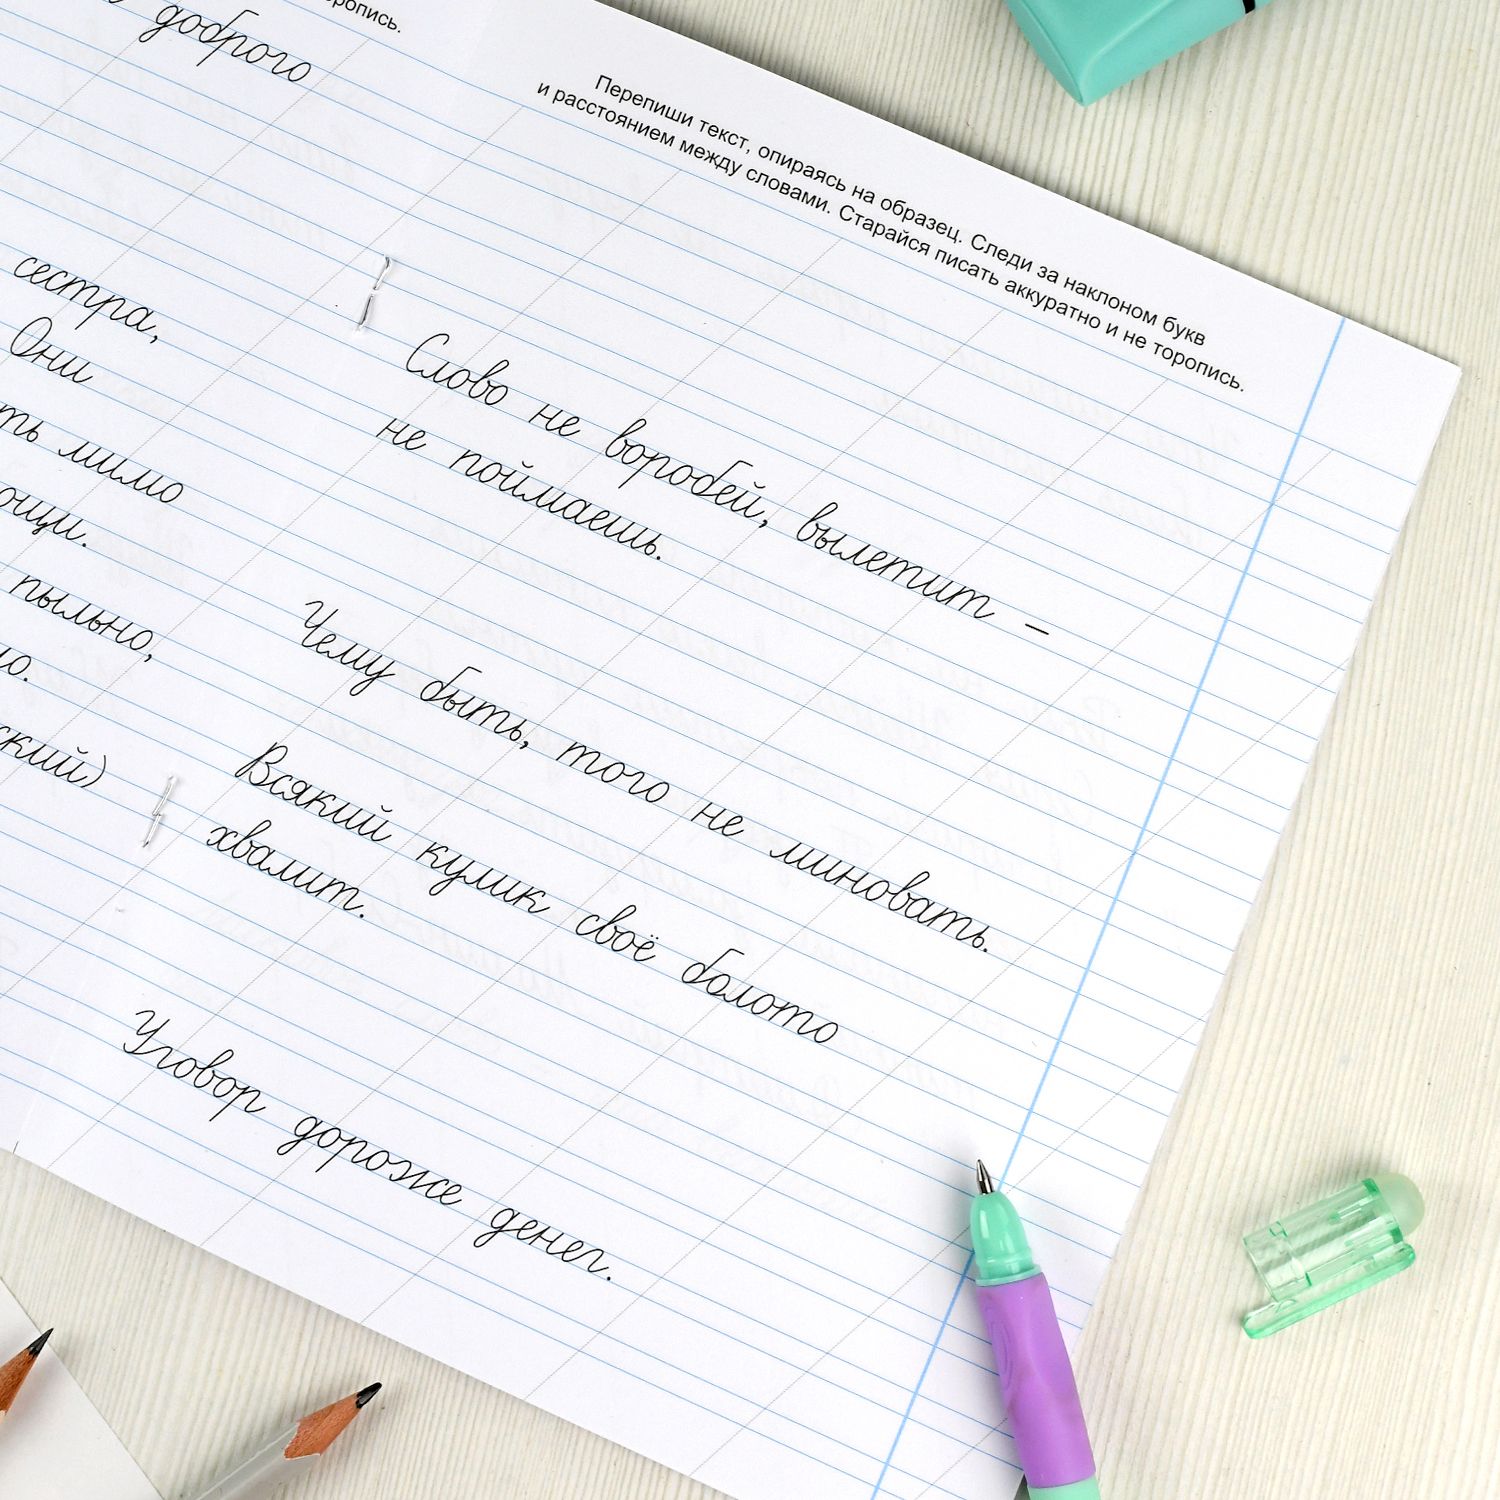 торопись.
доброго
сестра,
Они
мимо
пыльно,
Перепиши текст, опираясь на образец. Следи за наклоном букв
и расстоянием между словами. Старайся писать аккуратно и не торопись.
Слово не воробей, вылетит –
не поймаешь.
Чему быть, того не миновать.
Всякий кулик своё болото
хвалит.
Уговор дороже денег.